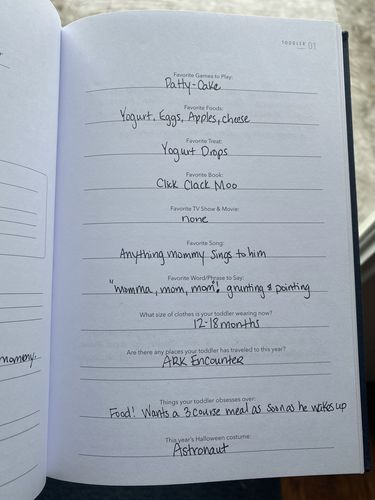 TODDLER 01
Favorite Games to Play:
Patty-Cake
Favorite Foods:
Yogurt, Eggs, Apples, cheese
Favorite Treat:
Yogurt Drops
Favorite Book:
Click Clack Moo
Favorite TV Show & Movie:
none
Favorite Song:
Anything mommy sings to him
Favorite Word/Phrase to Say:
"Momma, mom, mom"! grunting & pointing
What size of clothes is your toddler wearing now?
12-18 months
Are there any places your toddler has traveled to this year?
ARK ENCOUNTER
mommy.
Things your toddler obsesses over:
Food! Wants a 3 course meal as soon as he wakes up
This year's Halloween costume:
Astronaut